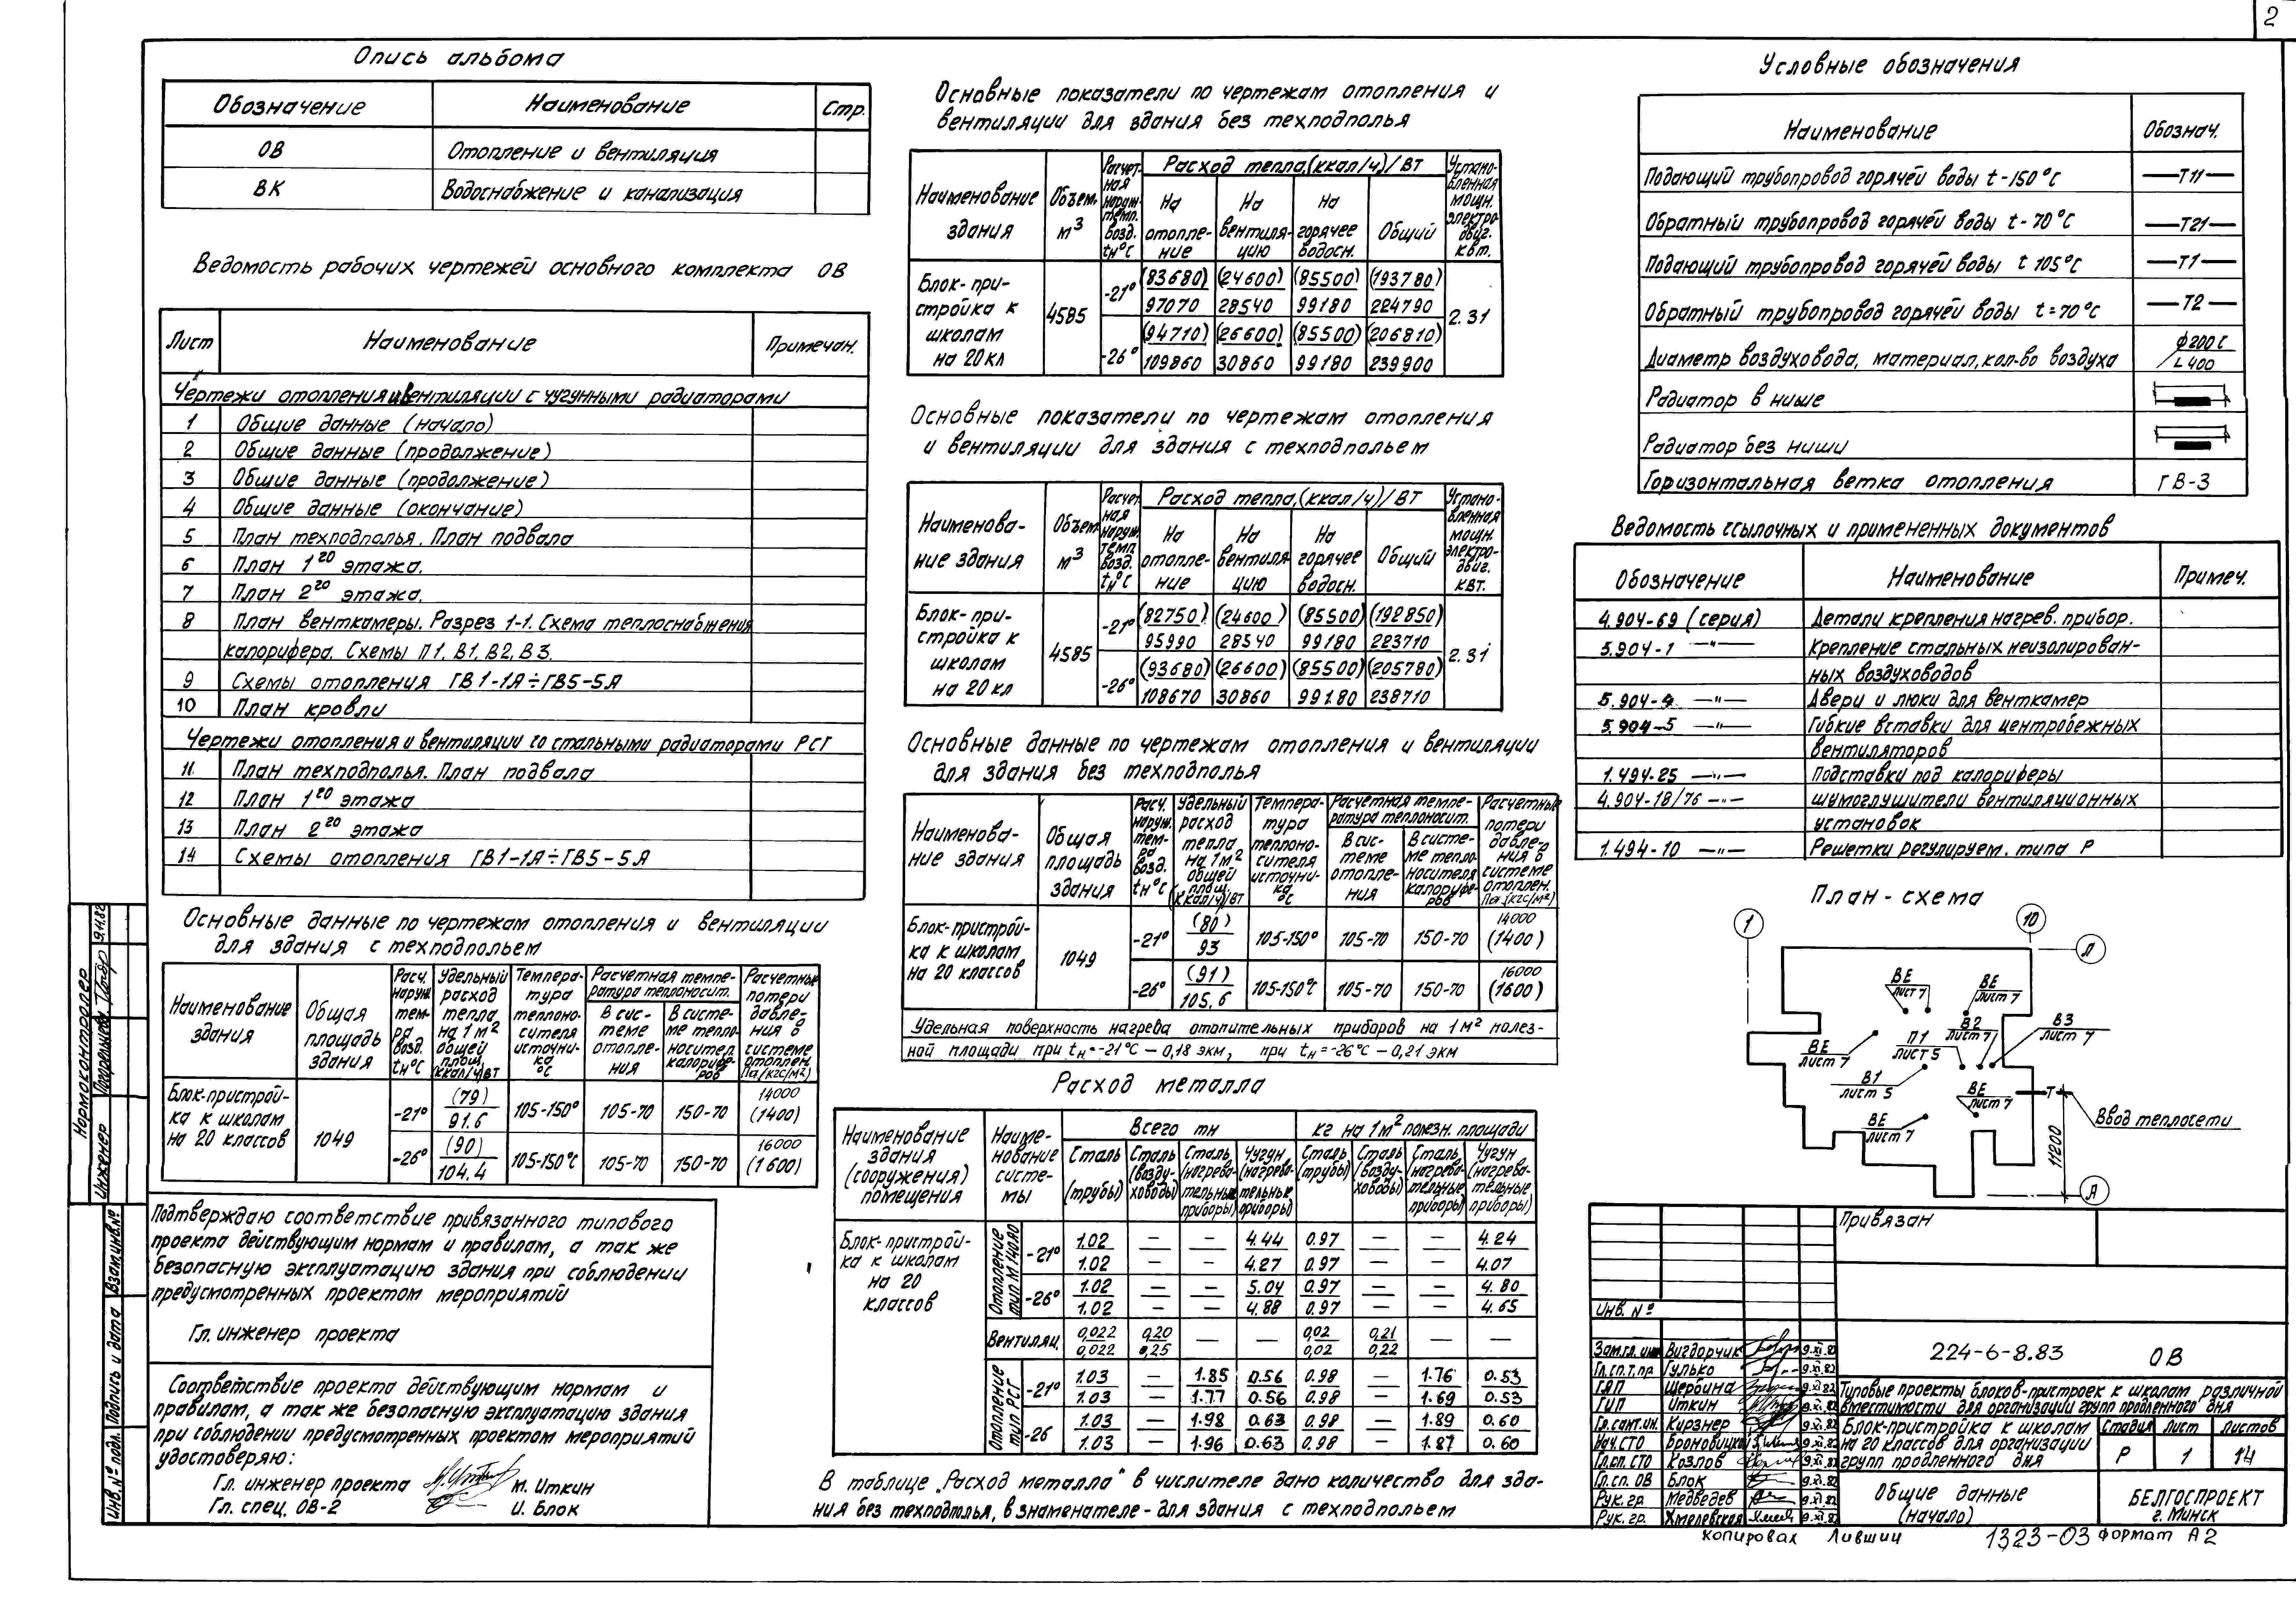 2
Опись альбома
Обозначение Наименование Стр.
ОВ Отопление и вентиляция
ВК Водоснабжение и канализация
Ведомость рабочих чертежей основного комплекта ОВ
Лист Наименование Примечан.
Чертежи отопления и вентиляции с чугунными радиаторами
1 Общие данные (начало)
2 Общие данные (продолжение)
3 Общие данные (продолжение)
4 Общие данные (окончание)
5 План техподполья. План подвала
6 План 1го этажа.
7 План 2го этажа.
8 План венткамеры. Разрез 1-1. Схема теплоснабжения
калорифера. Схемы П1, В1, В2, В3.
9 Схемы отопления ГВ1-1Я÷ГВ5-5Я
10 План кровли
Чертежи отопления и вентиляции со стальными радиаторами РСГ
11 План техподполья. План подвала
12 План 1го этажа
13 План 2го этажа
14 Схемы отопления ГВ1-1Я÷ГВ5-5Я
Основные данные по чертежам отопления и вентиляции
для здания с техподпольем
Наименование здания
Общая площадь здания
Расч. наруж. темп-ра возд. tн°С
Удельный расход тепла на 1м² общей площ. (ккал/ч)/ВТ
Температура теплоносителя источника °С
Расчетная температура теплоносит.
В системе отопления
В системе теплоносител. калориферов
Расчетные потери давления в системе отоплен. Па (кгс/м²)
Блок-пристрой-
ка к школам
на 20 классов
1049
-21° (79) 91.6 105-150° 105-70 150-70 14000 (1400)
-26° (90) 104.4 105-150°С 105-70 150-70 16000 (1600)
Подтверждаю соответствие привязанного типового
проекта действующим нормам и правилам, а так же
безопасную эксплуатацию здания при соблюдении
предусмотренных проектом мероприятий
Гл. инженер проекта
Соответствие проекта действующим нормам и
правилам, а так же безопасную эксплуатацию здания
при соблюдении предусмотренных проектом мероприятий
удостоверяю:
Гл. инженер проекта М. Иткин
Гл. спец. ОВ-2 И. Блок
Нормоконтролер
Инженер
9.11.82
Взам.инв.№
Подпись и дата
Инв.№ подл.
Основные показатели по чертежам отопления и
вентиляции для здания без техподполья
Наименование здания
Объем, м³
Расчетная наруж. темп. возд. tн°С
Расход тепла, (ккал/ч)/ВТ
На отопление
На вентиляцию
На горячее водосн.
Общий
Установленная мощн. электродвиг. квт.
Блок-при-
стройка к
школам
на 20 кл
4585
-21° (83680) (24600) (85500) (193780)
97070 28540 99180 224790
-26° (94710) (26600) (85500) (206810)
109860 30860 99180 239900
2.31
Основные показатели по чертежам отопления
и вентиляции для здания с техподпольем
Наименова-
ние здания
Объем м³
Расчетная наруж. темп возд. tн°С
Расход тепла, (ккал/ч)/ВТ
На отопление
На вентиляцию
На горячее водосн.
Общий
Установленная мощн. электродвиг. квт.
Блок-при-
стройка к
школам
на 20 кл
4585
-21° (82750) (24600) (85500) (192850)
95990 28540 99180 223710
-26° (93680) (26600) (85500) (205780)
108670 30860 99180 238710
2.31
Основные данные по чертежам отопления и вентиляции
для здания без техподполья
Наименова-
ние здания
Общая площадь здания
Расч. наруж. тем-ра возд. tн°С
Удельный расход тепла на 1м² общей площ. (ккал/ч)/ВТ
Температура теплоносителя источника °С
Расчетная температура теплоносит.
В системе отопления
В системе теплоносителя калориферов
Расчетные потери давления в системе отоплен. Па (кгс/м²)
Блок-пристрой-
ка к школам
на 20 классов
1049
-21° (80) 93 105-150° 105-70 150-70 14000 (1400)
-26° (91) 105.6 105-150°С 105-70 150-70 16000 (1600)
Удельная поверхность нагрева отопительных приборов на 1м² полез-
ной площади при tн=-21°С – 0,18 экм, при tн=-26°С – 0,21 экм
Расход металла
Наименование здания (сооружения) помещения
Наименование системы
Всего тн
кг на 1м² полезн. площади
Сталь (трубы)
Сталь (воздуховоды)
Сталь (нагревательные приборы)
Чугун (нагревательные приборы)
Сталь (трубы)
Сталь (воздуховоды)
Сталь (нагревательные приборы)
Чугун (нагревательные приборы)
Блок-пристрой-
ка к школам
на 20
классов
Отопление тип М 140 АО
-21° 1.02 – – 4.44 0.97 – – 4.24
1.02 – – 4.27 0.97 – – 4.07
-26° 1.02 – – 5.04 0.97 – – 4.80
1.02 – – 4.88 0.97 – – 4.65
Вентиляц. 0,022 0,20 – – 0,02 0,21 – –
0,022 0,25 0,02 0,22
Отопление тип РСГ
-21° 1.03 – 1.85 0.56 0.98 – 1.76 0.53
1.03 – 1.77 0.56 0.98 – 1.69 0.53
-26 1.03 – 1.98 0.63 0.98 – 1.89 0.60
1.03 – 1.96 0.63 0.98 – 1.87 0.60
В таблице „Расход металла" в числителе дано количество для зда-
ния без техподполья, в знаменателе - для здания с техподпольем
Условные обозначения
Наименование Обознач.
Подающий трубопровод горячей воды t-150°С —Т11—
Обратный трубопровод горячей воды t-70°С —Т21—
Подающий трубопровод горячей воды t 105°С —Т1—
Обратный трубопровод горячей воды t=70°С —Т2—
Диаметр воздуховода, материал, кол-во воздуха ф200 С L400
Радиатор в нише
Радиатор без ниши
Горизонтальная ветка отопления ГВ-3
Ведомость ссылочных и примененных документов
Обозначение Наименование Примеч.
4.904-69 (серия) Детали крепления нагрев. прибор.
5.904-1 —"— Крепление стальных неизолирован-
ных воздуховодов
5.904-4 —"— Двери и люки для венткамер
5.904-5 —"— Гибкие вставки для центробежных
вентиляторов
1.494-25 —"— Подставки под калориферы
4.904-18/76 —"— Шумоглушители вентиляционных
установок
1.494-10 —"— Решетки регулируем. типа Р
План-схема
1 10 Л
ВЕ лист 7
ВЕ лист 7
В2 лист 7
В3 лист 7
П1 лист 5
ВЕ лист 7
В1 лист 5
ВЕ лист 7
ВЕ лист 7
Т
Ввод теплосети
11200
А
Привязан
Инв. №
224-6-8.83 ОВ
Зам.гл.инж Вигдорчик 9.XI.82
Гл.сп.т.пр Гулько 9.XI.82
ГАП Щербина 9.XI.82
ГИП Иткин 9.XI.82
Гл.сант.ин. Кирзнер 9.XI.82
Нач.СТО Броновицкий 9.XI.82
Гл.сп. СТО Козлов 9.XI.82
Гл.сп. ОВ Блок 9.XI.82
Рук. гр. Медведев 9.XI.82
Рук. гр. Хмелевская 9.XI.82
Типовые проекты блоков-пристроек к школам различной
вместимости для организации групп продленного дня
Блок-пристройка к школам
на 20 классов для организации
групп продленного дня
Стадия Лист Листов
Р 1 14
Общие данные
(начало)
БЕЛГОСПРОЕКТ
г. Минск
копировал Лившиц 1323-03 формат А2